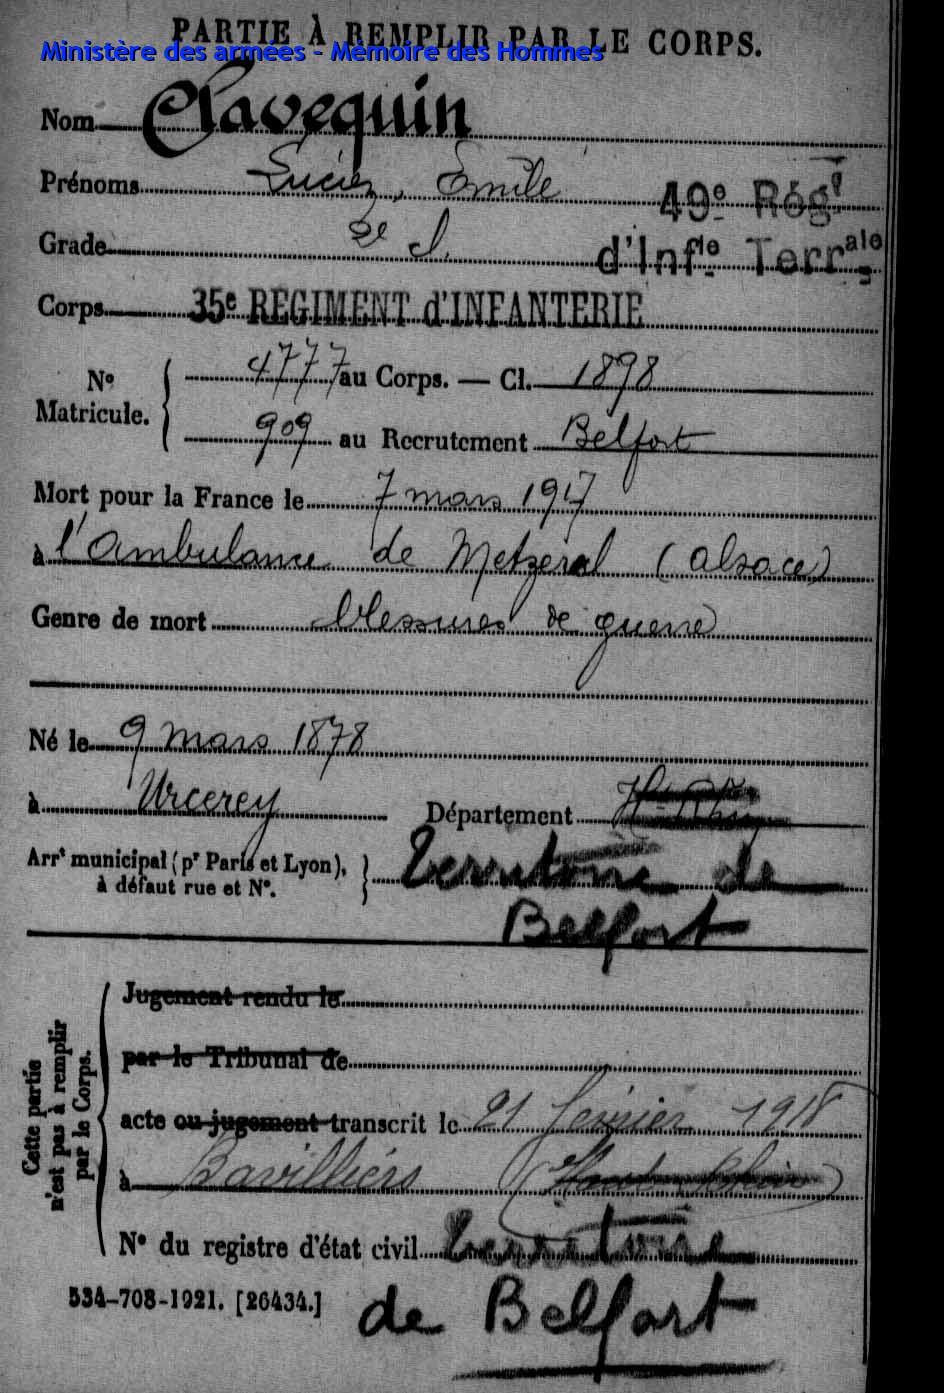 PARTIE À REMPLIR PAR LE CORPS.
Ministère des armées - Mémoire des Hommes
Nom Clavequin
Prénoms Lucien, Emile
49e Régt
Grade 2e S.
d'Infie Terrale
Corps 35e RÉGIMENT d'INFANTERIE
No Matricule. 4777 au Corps. — Cl. 1898
909 au Recrutement Belfort
Mort pour la France le 7 mars 1917
à l'ambulance de Metzeral (alsace)
Genre de mort blessures de guerre
Né le 9 mars 1878
à Urcerey Département Ht Rhin
Arrt municipal (pr Paris et Lyon), à défaut rue et No. Territoire de
Belfort
Cette partie n'est pas à remplir par le Corps.
Jugement rendu le
par le Tribunal de
acte ou jugement transcrit le 21 février 1918
à Bavilliers (Haut Rhin)
No du registre d'état civil Territoire
534-708-1921. [26434.] de Belfort